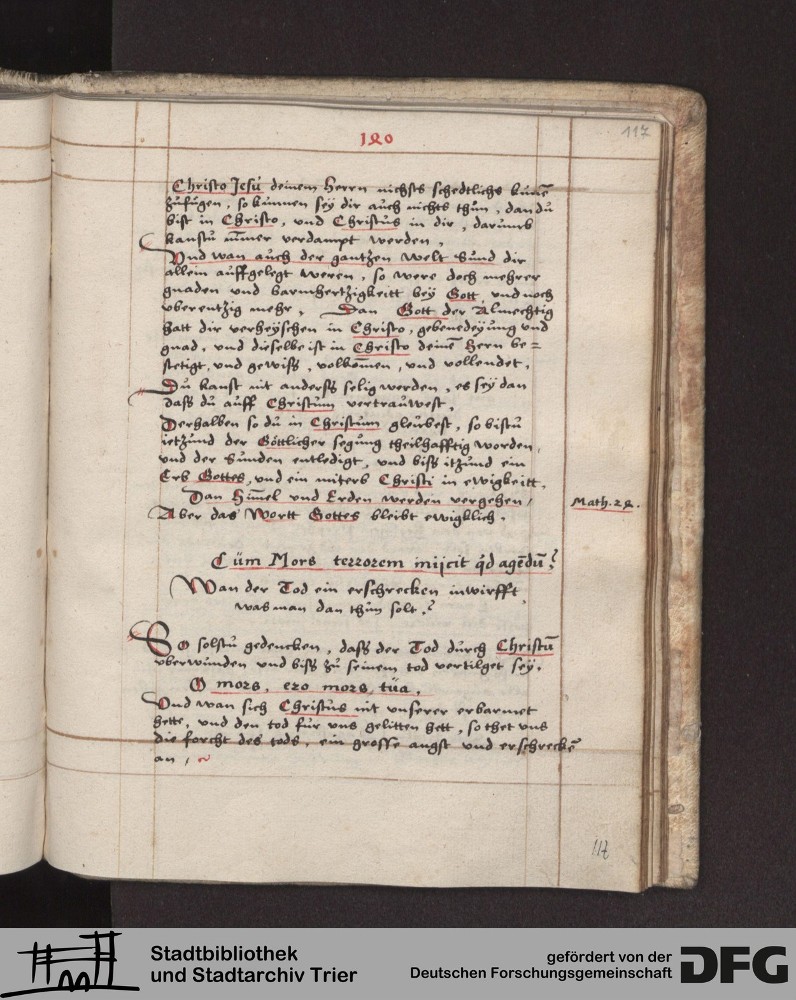 120
117
Christo Jesu deinem Herrn nichsts schedtlichs kunē
zufugen, so kunnen sey dir auch nichts thun, dan du
bist in Christo, und Christus in dir, darumb
kanstu nimer verdampt werden,
Vnd wan auch der gantzen welt Sund dir
allein auffgelegt weren, so were doch mehrer
gnaden und barmhertzigkeitt bey Gott, und noch
uberentzig mehr, Dan Gott der Almechtig
hatt dir verheyschen in Christo, gebenedeyung und
gnad, und dieselbe ist in Christo deinē hern be=
stetigt, und gewiss, volkomen, und vollendet,
Du kanst nit anderss selig werden, es sey dan
dass du auff Christum vertrauwest,
Derhalben so du in Christum gleubest, so bistu
ietzund der Göttlicher segung theilhafftig worden,
und der Sunden entledigt, und biss itzund ein
Erb Gottes, und ein miterb Christi in ewigkeitt,
Dan Himel und Erden werden vergehen,
Aber das Wortt Gottes bleibt ewigklich.
Math. 24.
Cüm Mors terrorem inijcit qd agēdū?
Wan der Tod ein erschrecken inwirfft,
was man dan thun solt?
So solstu gedencken, dass der Tod durch Christū
uberwunden und biss zu seinem tod vertilget sey.
O mors, ero mors tüa,
Und wan sich Christus nit unserer erbarmet
hette, und den tod fur uns gelitten hett, so thet uns
die forcht des tods, ein grosse angst und erschreckē
an,
117
Stadtbibliothek
und Stadtarchiv Trier
gefördert von der
Deutschen Forschungsgemeinschaft
DFG